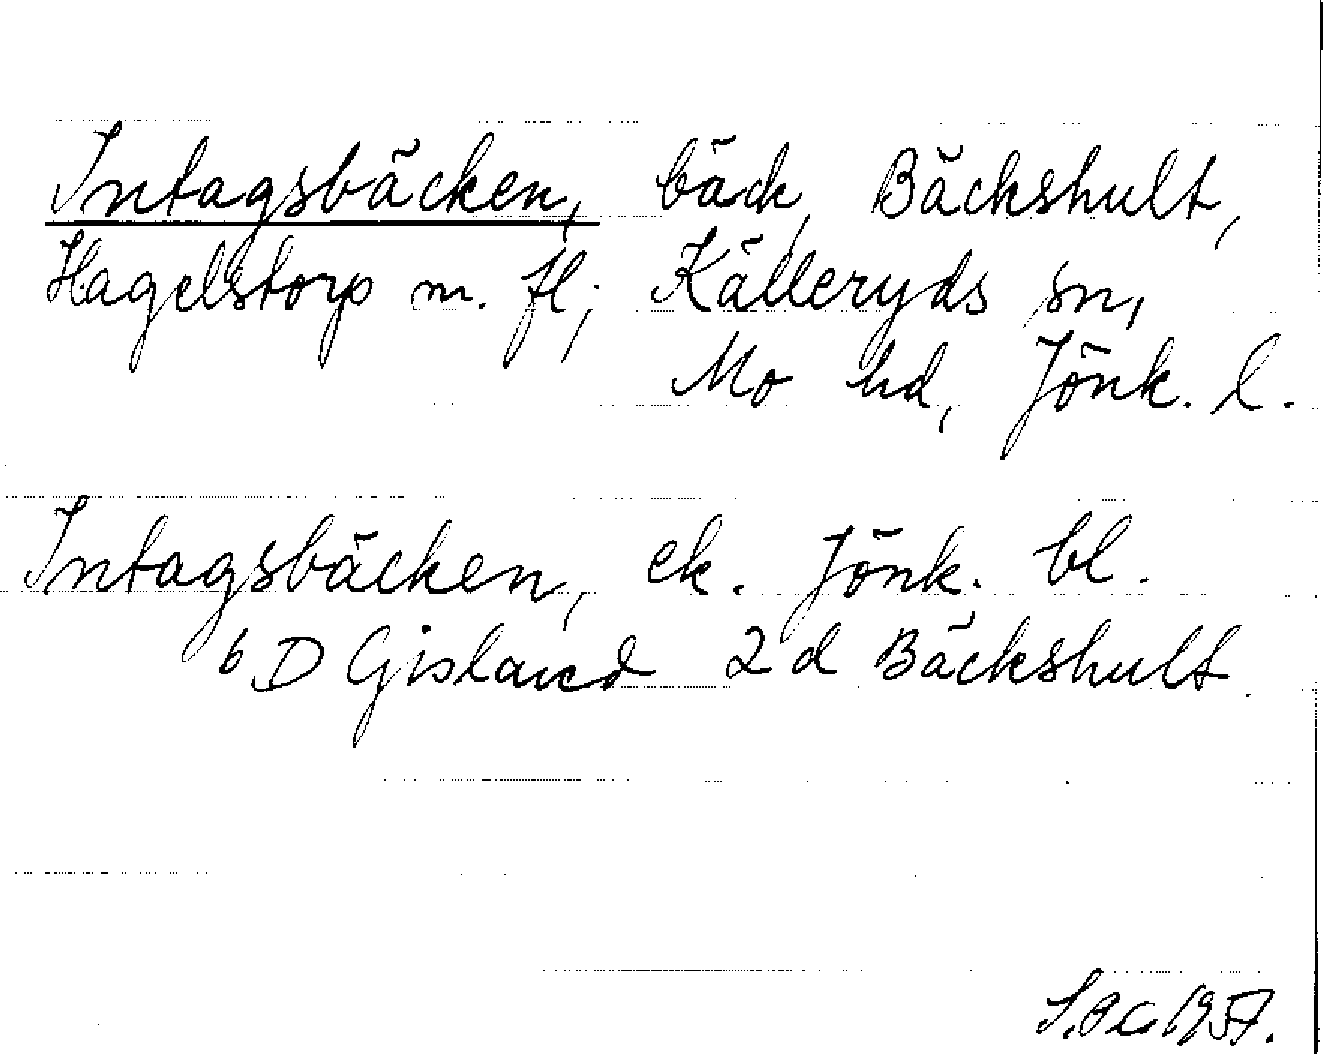 Intagsbäcken, bäck, Bäckshult,
Hagelstorp m. fl; Källeryds sn,
Mo hd, Jönk. l.
Intagsbäcken, ek. Jönk. bl.
6 D Gislaved 2 d Bäckshult.
1957.